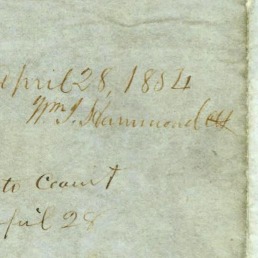 April 28, 1854
Wm. J. Hammond Clk
to Court
April 28